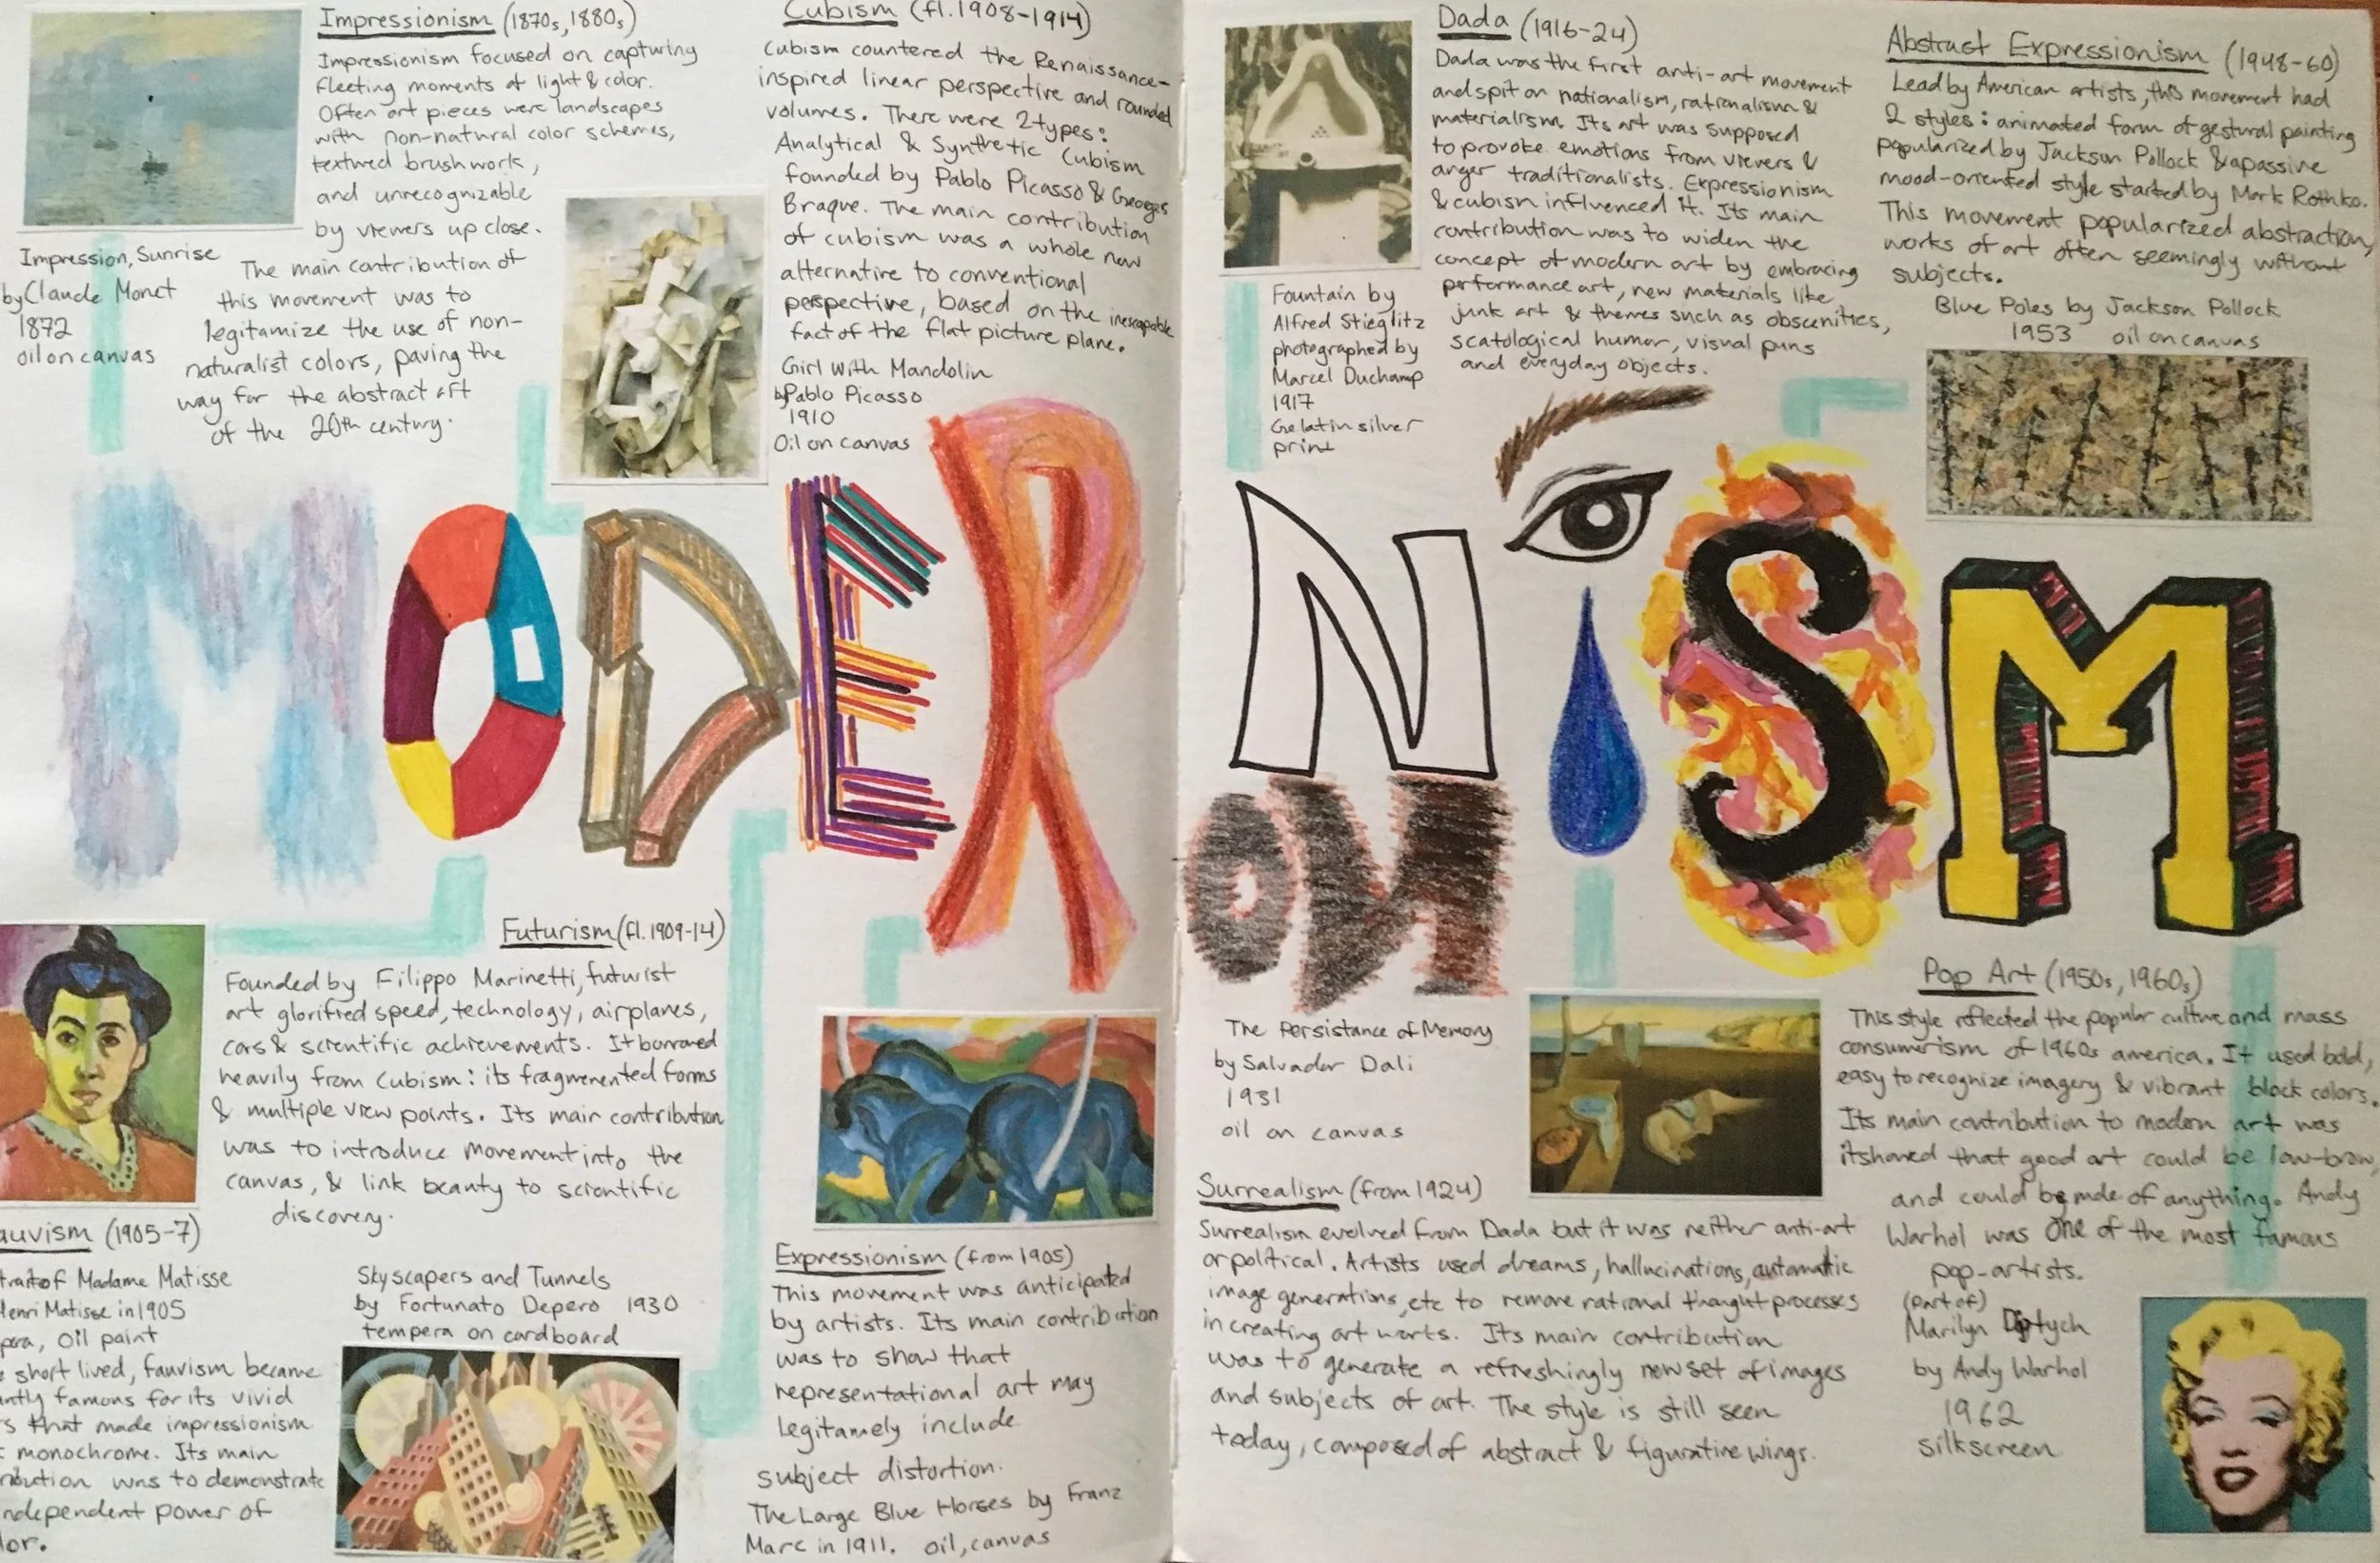 Impressionism (1870s, 1880s)
Impressionism focused on capturing
fleeting moments of light & color.
Often art pieces were landscapes
with non-natural color schemes,
textured brushwork,
and unrecognizable
by viewers up close.
The main contribution of
this movement was to
legitamize the use of non-
naturalist colors, paving the
way for the abstract art
of the 20th century.
Impression, Sunrise
by Claude Monet
1872
oil on canvas
Cubism (fl. 1908-1914)
Cubism countered the Renaissance-
inspired linear perspective and rounded
volumes. There were 2 types:
Analytical & Synthetic Cubism
founded by Pablo Picasso & Georges
Braque. The main contribution
of cubism was a whole new
alternative to conventional
perspective, based on the inescapable
fact of the flat picture plane.
Girl with Mandolin
by Pablo Picasso
1910
Oil on canvas
Dada (1916-24)
Dada was the first anti-art movement
and spit on nationalism, rationalism &
materialism. Its art was supposed
to provoke emotions from viewers &
anger traditionalists. Expressionism
& cubism influenced it. Its main
contribution was to widen the
concept of modern art by embracing
performance art, new materials like
junk art & themes such as obscenities,
scatological humor, visual puns
and everyday objects.
Fountain by
Alfred Stieglitz
photographed by
Marcel Duchamp
1917
Gelatin silver
print
Abstract Expressionism (1948-60)
Lead by American artists, this movement had
2 styles: animated form of gestural painting
popularized by Jackson Pollock & a passive
mood-oriented style started by Mark Rothko.
This movement popularized abstraction,
works of art often seemingly without
subjects.
Blue Poles by Jackson Pollock
1953 oil on canvas
MODERNiSM
Futurism (fl. 1909-14)
Founded by Filippo Marinetti, futurist
art glorified speed, technology, airplanes,
cars & scientific achievements. It borrowed
heavily from Cubism: its fragmented forms
& multiple view points. Its main contribution
was to introduce movement into the
canvas, & link beauty to scientific
discovery.
Skyscapers and Tunnels
by Fortunato Depero 1930
tempera on cardboard
auvism (1905-7)
trait of Madame Matisse
Henri Matisse in 1905
pera, oil paint
short lived, fauvism became
ntly famous for its vivid
s that made impressionism
monochrome. Its main
ribution was to demonstrate
ndependent power of
lor.
Expressionism (from 1905)
This movement was anticipated
by artists. Its main contribution
was to show that
representational art may
legitamely include
subject distortion.
The Large Blue Horses by Franz
Marc in 1911. oil, canvas
The Persistance of Memory
by Salvador Dali
1931
oil on canvas
Surrealism (from 1924)
Surrealism evolved from Dada but it was neither anti-art
or political. Artists used dreams, hallucinations, automatic
image generations, etc to remove rational thought processes
in creating art works. Its main contribution
was to generate a refreshingly new set of images
and subjects of art. The style is still seen
today, composed of abstract & figurative wings.
Pop Art (1950s, 1960s)
This style reflected the popular culture and mass
consumerism of 1960s america. It used bold,
easy to recognize imagery & vibrant block colors.
Its main contribution to modern art was
it showed that good art could be low-brow
and could be made of anything. Andy
Warhol was one of the most famous
pop-artists.
(part of)
Marilyn Diptych
by Andy Warhol
1962
silkscreen